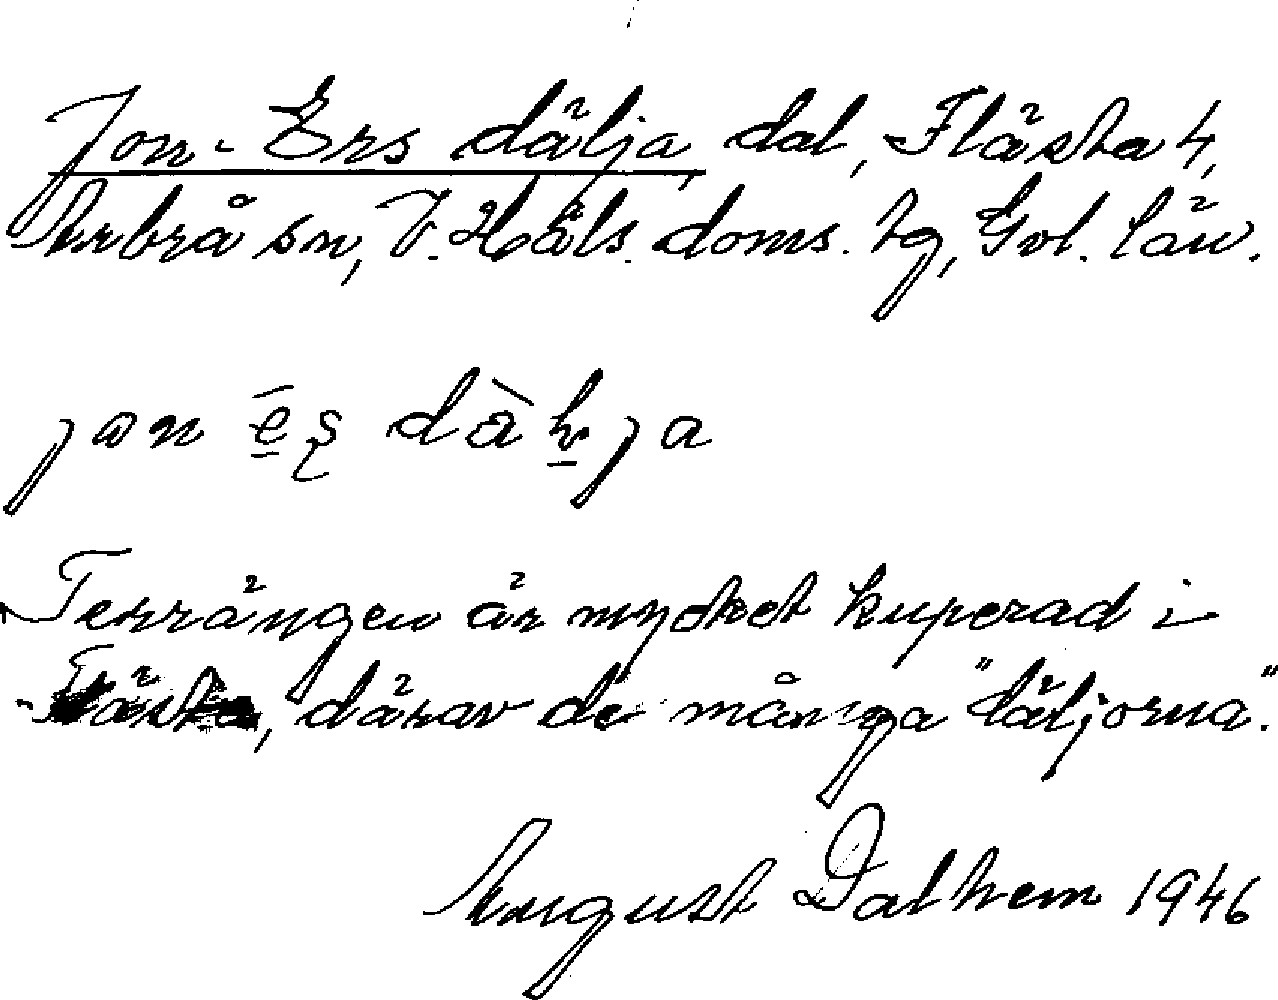 Jon-Ers dälja, dal, Flästa 4,
Arbrå sn, V. Häls. doms. tg, Gvl. län.
jon
Terrängen är mycket kuperad i
Flästa, därav de många "däljorna."
August Dalhem 1946